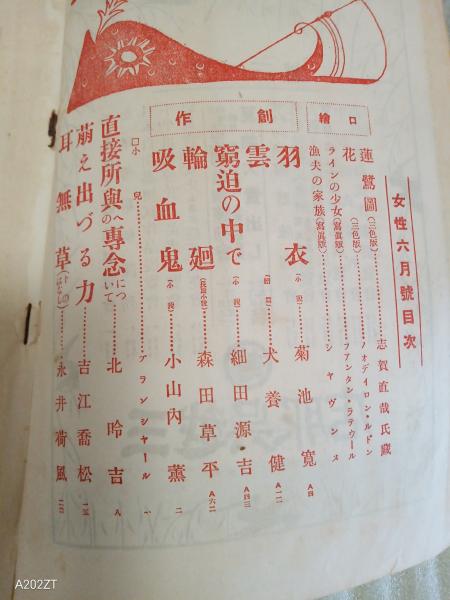 女性六月號目次
口繪
蓮鷺圖(三色版)………志賀直哉氏藏
花(三色版)………オディロン・ルドン
ラインの少女(寫眞版)……フアンタン・ラテウール
漁夫の家族(寫眞版)………シヤヴンヌ
創作
羽衣(小說)………菊池寬 A四
雲………犬養健 A二二
窮迫の中で(小說)………細田源吉 A四三
輪廻(長篇小說)………森田草平 A六二
吸血鬼(小說)………小山內薰 二
□小兒………ブランシャール 一
直接所與への專念について………北昤吉 八
萠え出づる力………吉江喬松 一五
耳無草………永井荷風 二三
A202ZT